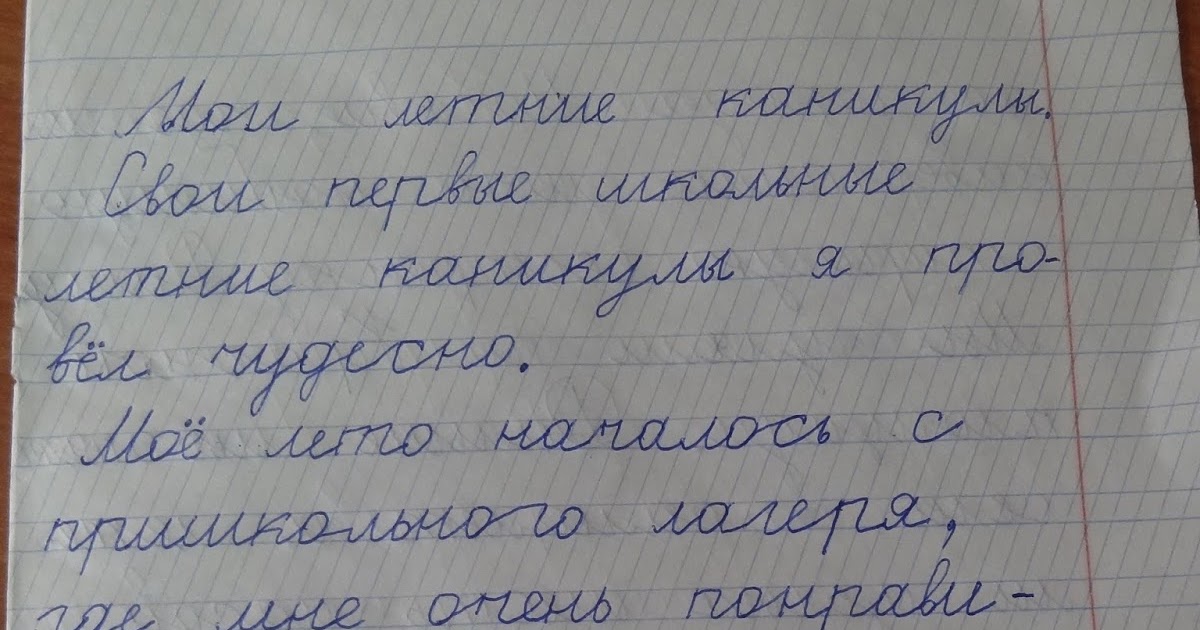 Мои летние каникулы.
Свои первые школьные
летние каникулы я про-
вёл чудесно.
Моё лето началось с
пришкольного лагеря,
где мне очень понрави-